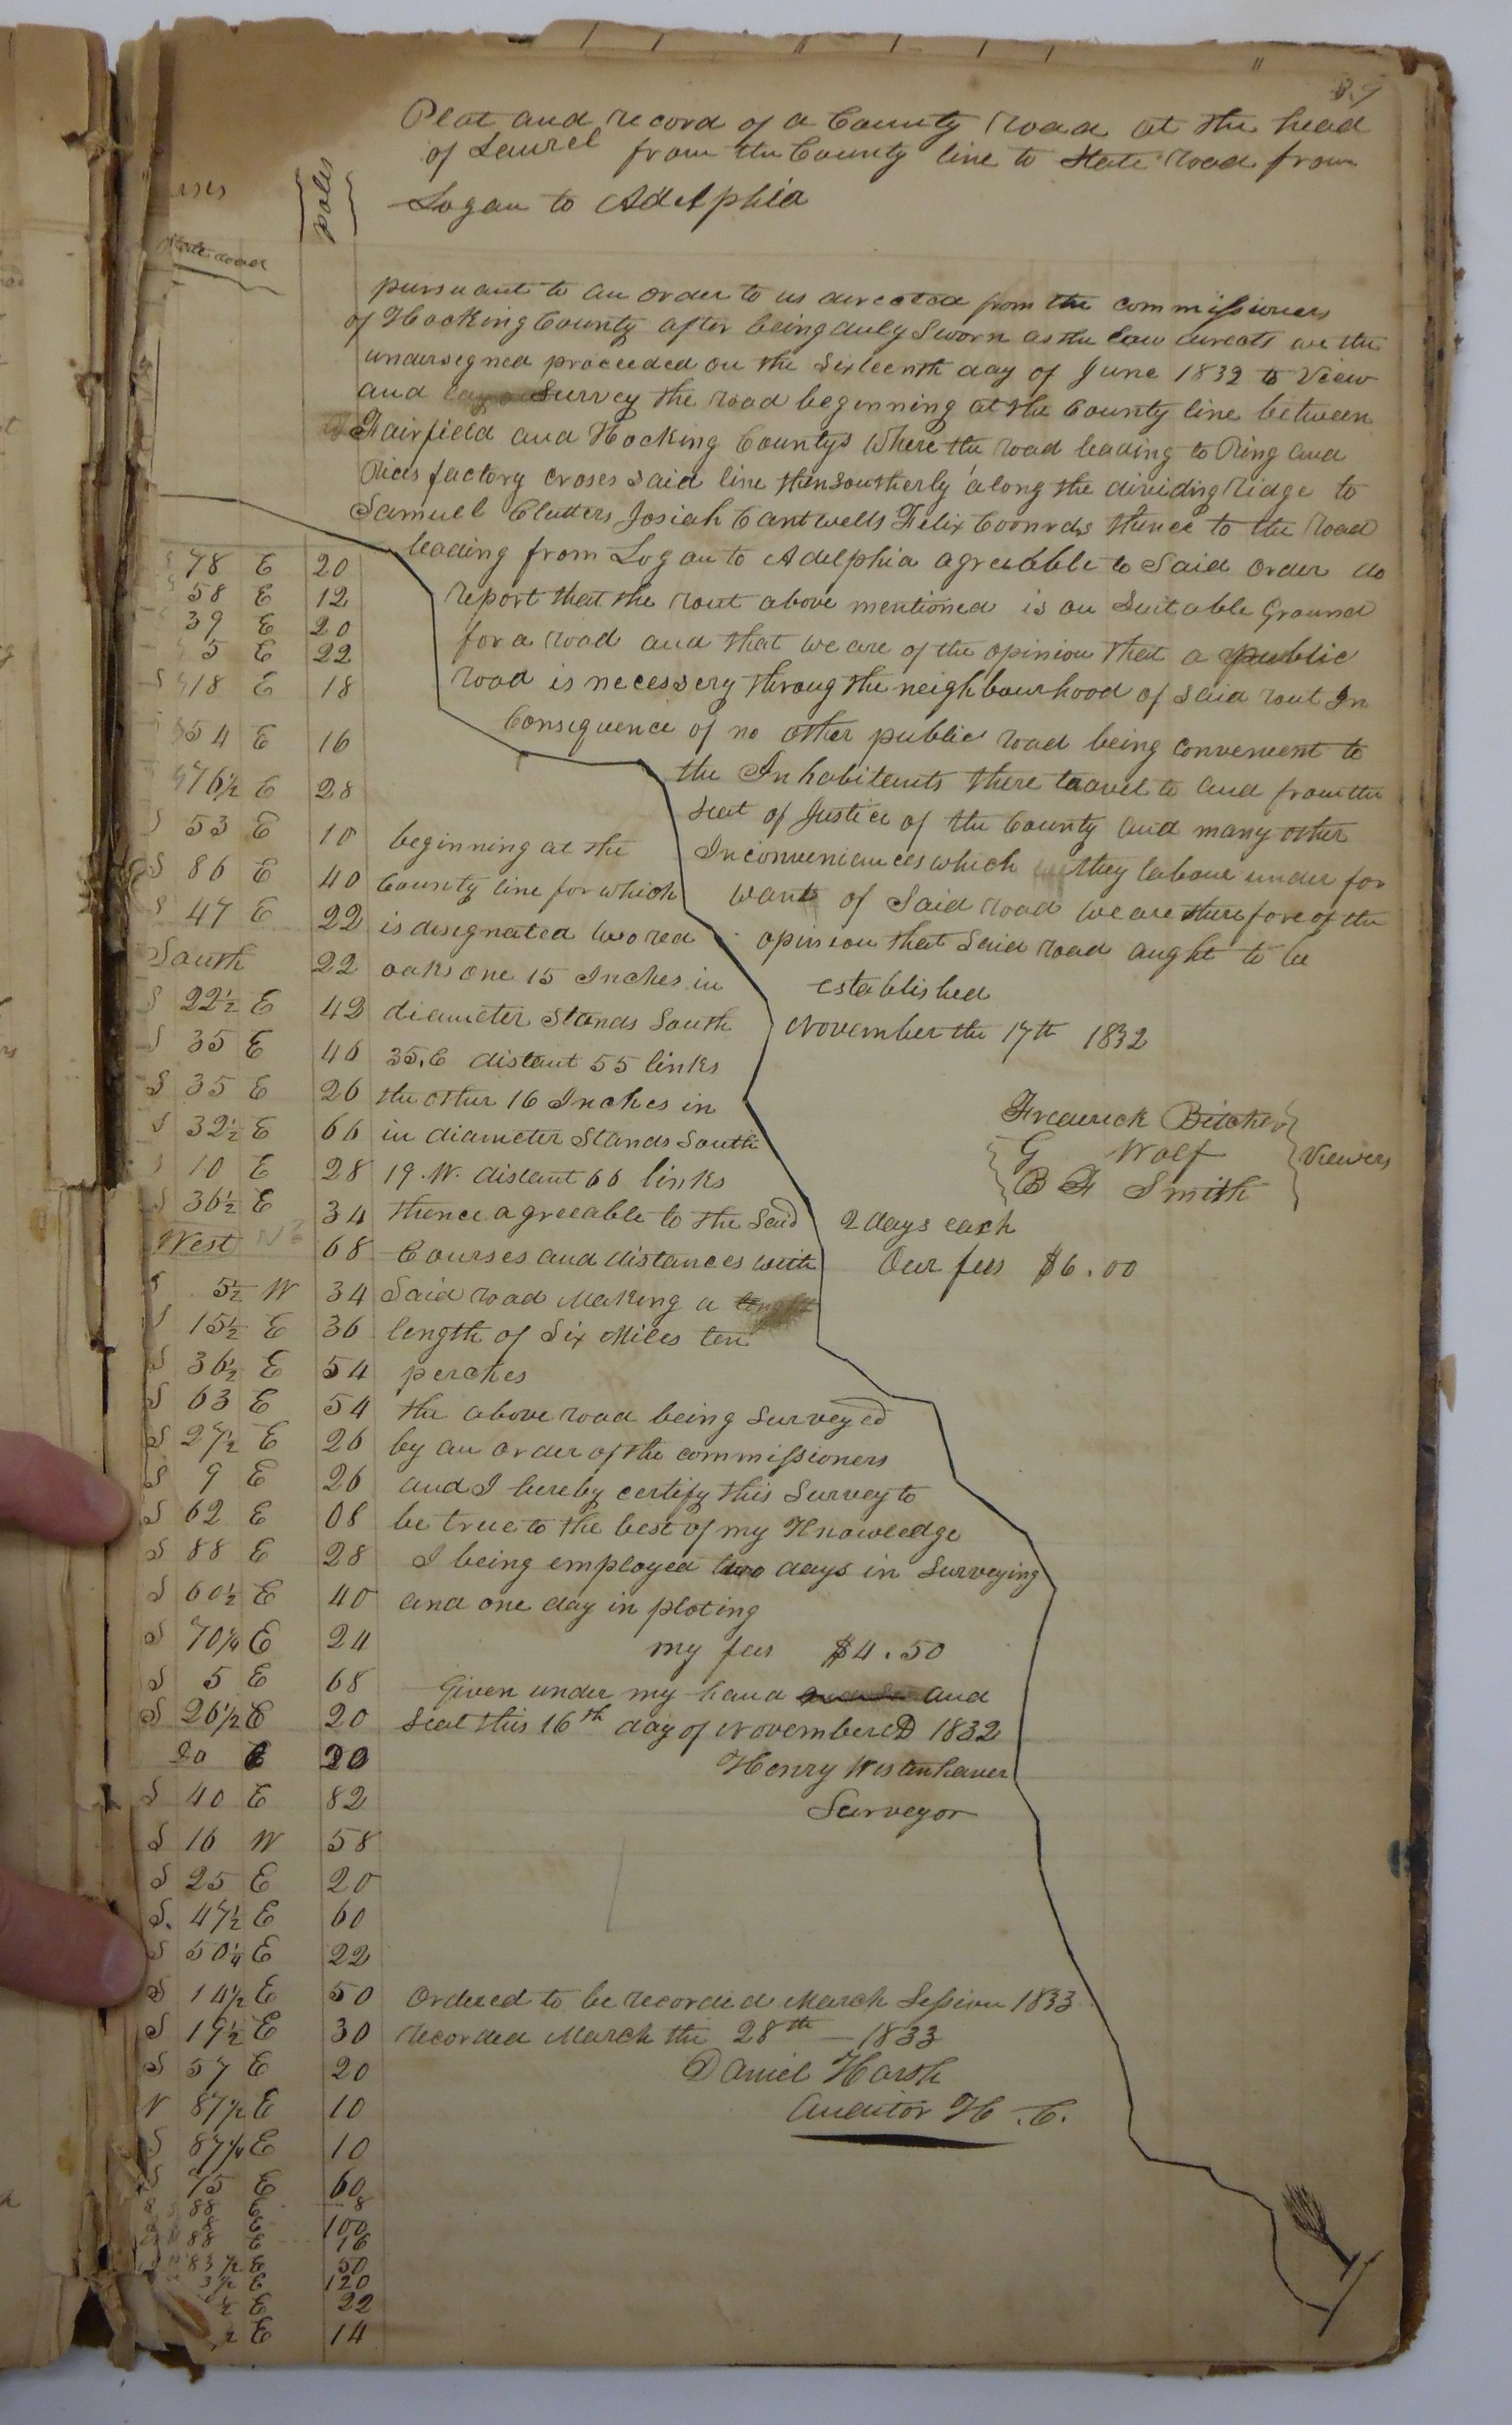 39
Plat and record of a County Road at the head
of Laurel from the County line to State Road from
Logan to Adelphia
poles
State road
pursuant to an order to us directed from the commissioners
of Hocking County after being duly sworn as the law directs we the
undersigned proceeded on the Sixteenth day of June 1832 to View
and Survey the road beginning at the County line between
Fairfield and Hocking Countys Where the road leading to Ring and
Rices factory croses said line then southerly along the dividing ridge to
Samuel Clutters Josiah Cantwells Felix Coonrds thence to the road
leading from Logan to Adelphia agreeable to Said order do
report that the rout above mentioned is on Suitable Ground
for a road and that we are of the opinion that a public
road is necessery throug the neighbourhood of said rout In
Consequence of no other public road being convenient to
the Inhabitents there travel to and from the
seat of Justice of the County and many other
Inconveniances which they labour under for
want of Said road we are therefore of the
opinion that Said road aught to be
established
November the 17th 1832
Frederick Bitcher
G Wolf
B F Smith
Viewers
2 days each
Our fees $6.00
78 E 20
58 E 12
39 E 20
5 E 22
S 18 E 18
54 E 16
76½ E 28
S 53 E 10
S 86 E 40
S 47 E 22
South 22
S 22½ E 42
S 35 E 46
S 35 E 26
S 32½ E 66
10 E 28
S 36½ E 34
West 68
S 5½ W 34
S 15½ E 36
S 36½ E 54
S 63 E 54
S 27½ E 26
S 9 E 26
S 62 E 08
S 88 E 28
S 60½ E 40
S 70¼ E 24
S 5 E 68
S 26½ E 20
20 E 20
S 40 E 82
S 16 W 58
S 25 E 20
S. 47½ E 60
S 50¼ E 22
S 14½ E 50
S 19½ E 30
S 57 E 20
N 87½ E 10
S 87¼ E 10
S 75 E 60
88 E 8
8 E 100
88 E 16
83½ E 50
3½ E 120
½ E 22
E 14
beginning at the
County line for which
is designated two red
oaks one 15 Inches in
diameter Stands South
35. E distant 55 links
the other 16 Inches in
in diameter Stands South
19. W. distant 66 links
thence agreeable to the Said
Courses and distances with
Said road Making a lenght
length of Six Miles ten
perches
the above road being Surveyed
by an order of the commissioners
and I hereby certify this Survey to
be true to the best of my Knowledge
I being employed two days in Surveying
and one day in ploting
my fees $4.50
Given under my hand and
Seal this 16th day of November AD 1832
Henry Westenhaver
Surveyor
Ordered to be recorded March Session 1833
recorded March the 28th — 1833
Daniel Harsh
Auditor H.C.